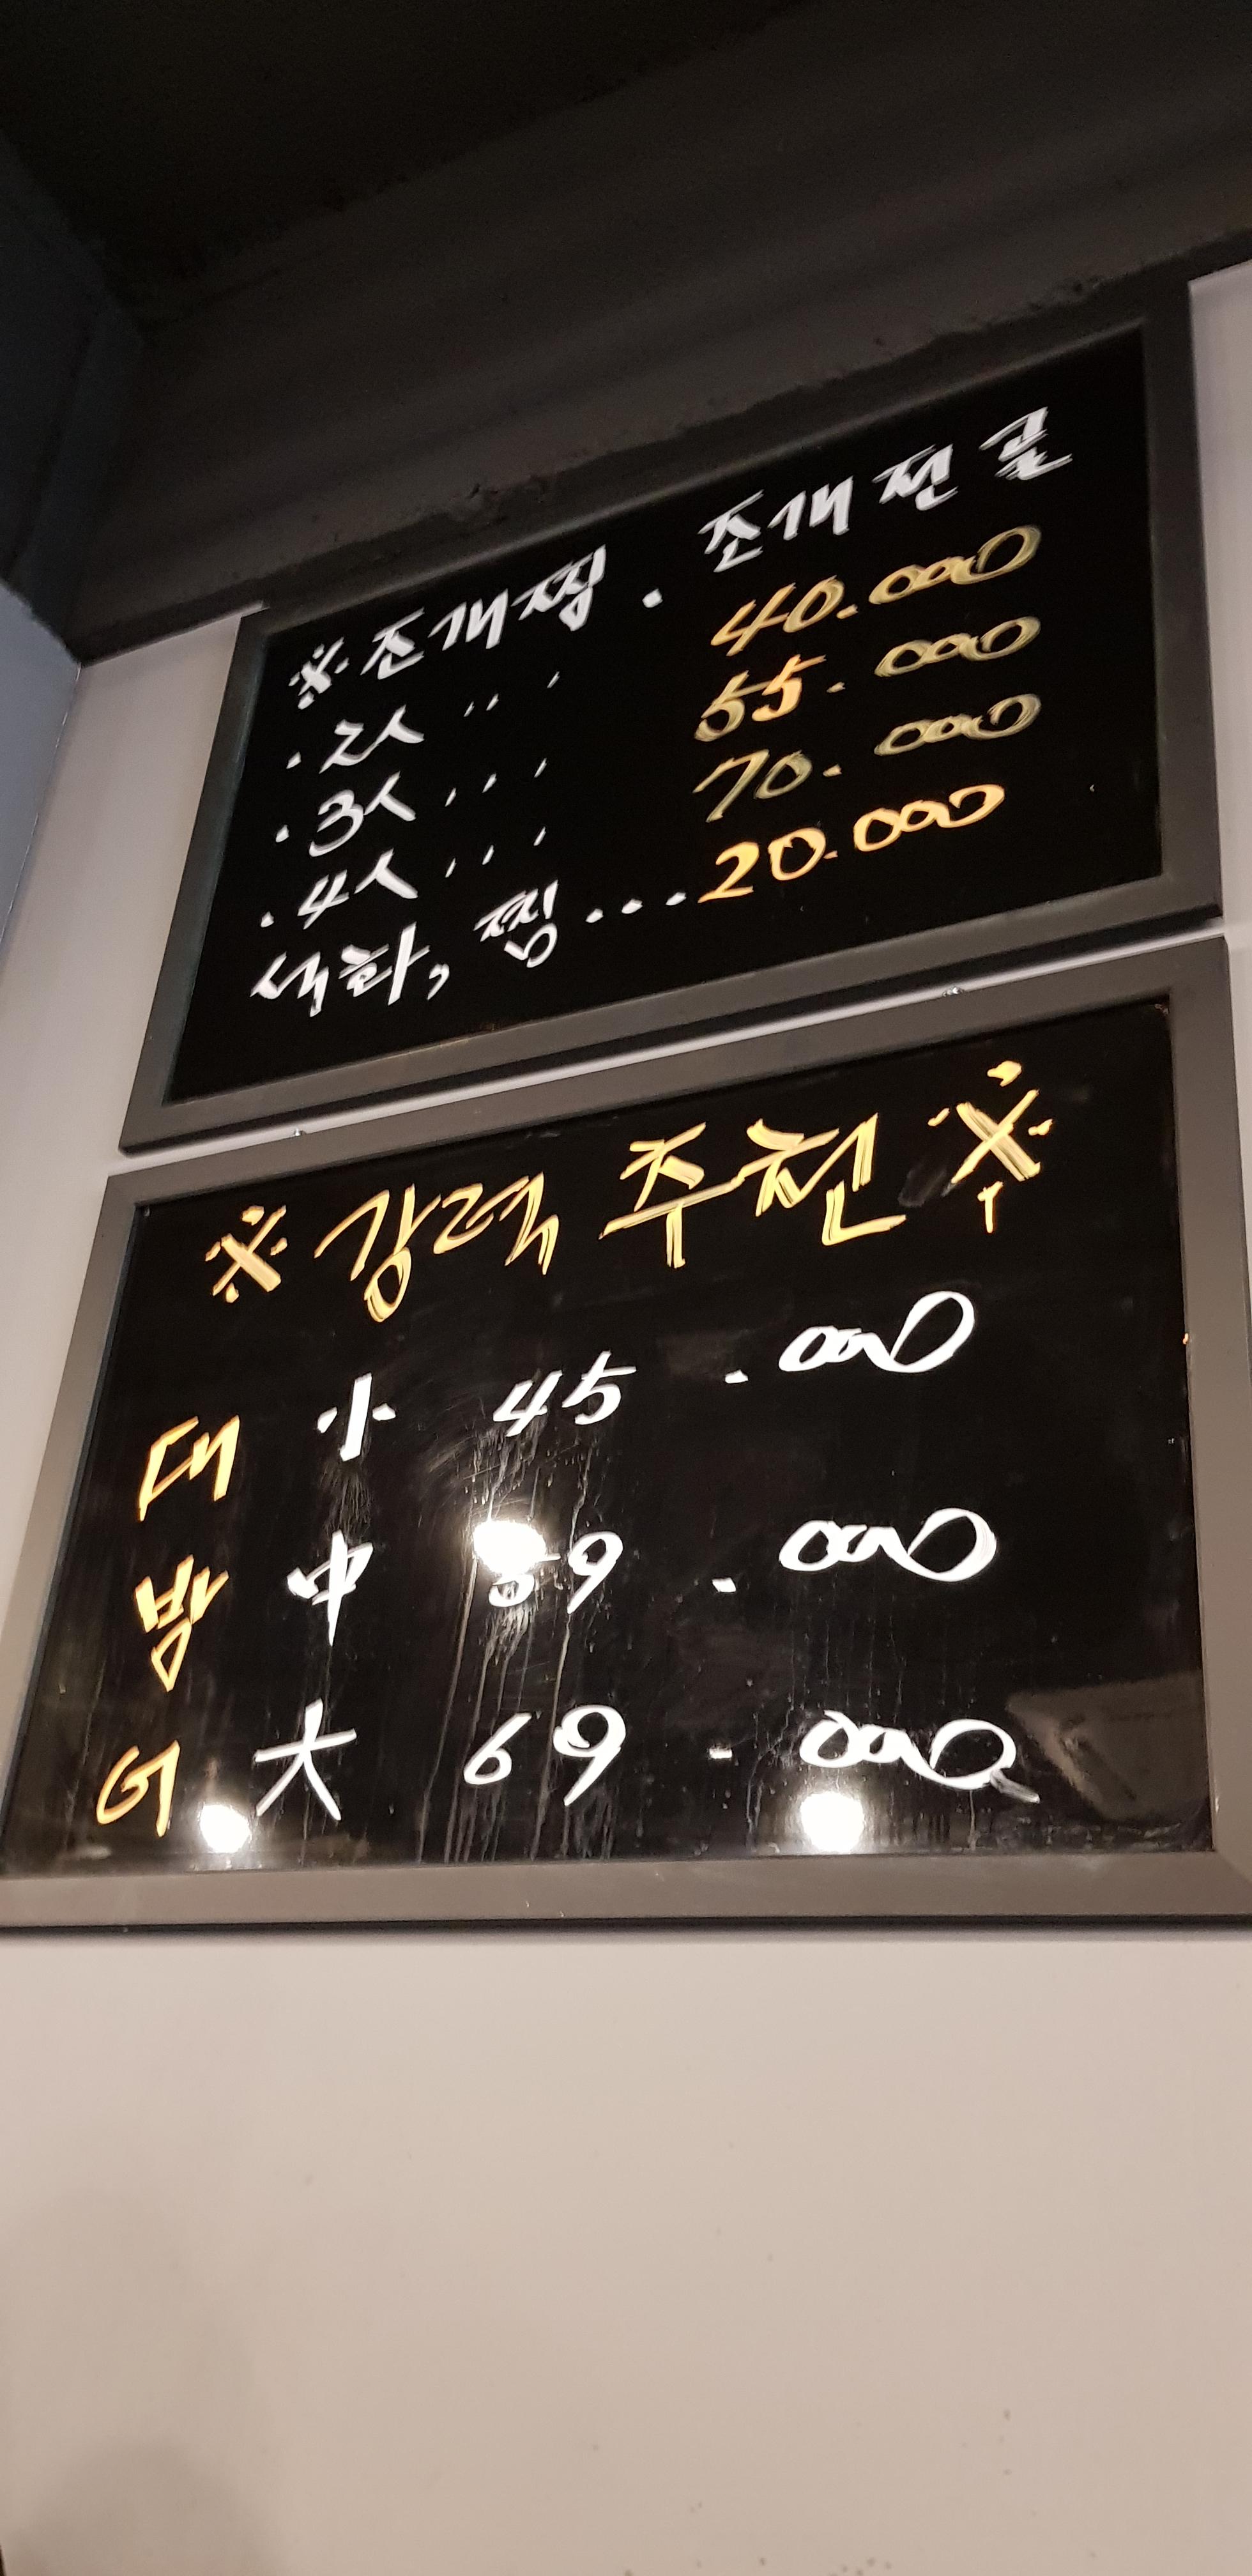 ※조개찜. 조개전골
.2人,,, 40.000
.3人,,, 55.000
.4人,,, 70.000
석화, 찜...20.000
※강력 추천※
대 小 45.000
방 中 59.000
어 大 69.000